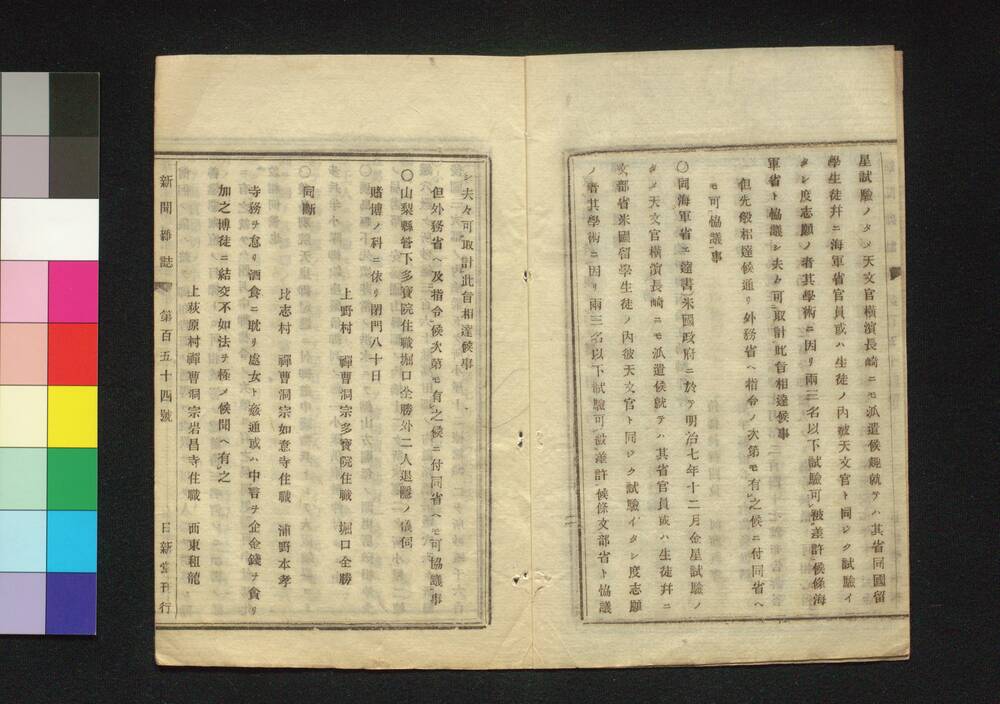 星試驗ノタメ天文官橫濱長崎ニモ派遣候趣就テハ其省同國留
學生徒幷ニ海軍省官員或ハ生徒ノ內彼天文官ト同ジク試驗イ
タシ度志願ノ者其學術ニ因リ兩三名以下試驗可被差許候條海
軍省ト協議シ夫々可取計此旨相達候事
但先般相達候通リ外務省ヘ指令ノ次第モ有之候ニ付同省ヘ
モ可協議事
〇同海軍省エ達書米國政府ニ於テ明治七年十二月金星試驗ノ
タメ天文官橫濱長崎ニモ派遣候就テハ其省官員或ハ生徒幷ニ
文部省米國留學生徒ノ內彼天文官ト同ジク試驗イタシ度志願
ノ者其學術ニ因リ兩三名以下試驗可被差許候條文部省ト協議
シ夫々可取計此旨相達候事
但外務省ヘ及指令候次第モ有之候ニ付同省ヘモ可協議事
〇山梨縣管下多寶院住職堀口全勝外二人退隱ノ儀伺
賭博ノ科ニ依リ閉門八十日
上野村 禪曹洞宗多寶院住職 堀口全勝
〇同斷
比志村 禪曹洞宗如意寺住職 浦野本孝
寺務ヲ怠リ酒食ニ耽リ處女ト姦通或ハ中言ヲ企金錢ヲ貪リ
加之博徒ニ結交不如法ヲ極ノ候聞ヘ有之
上萩原村禪曹洞宗岩昌寺住職 西東租龍
新聞雜誌 第百五十四號 日新堂刊行